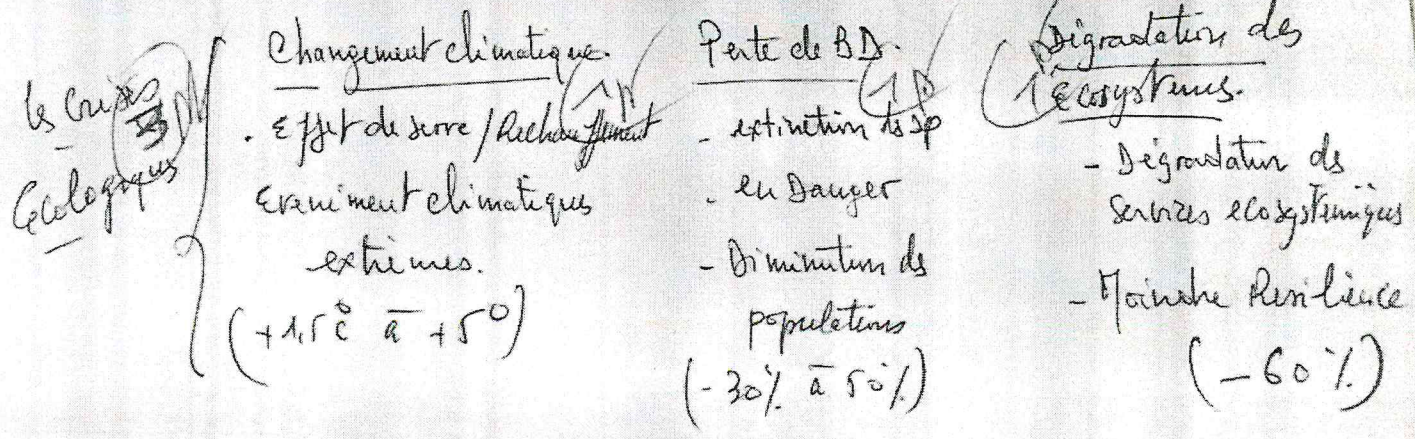 Les Crises
Ecologiques
3 pt
Changement climatique.
1 pt
. Effet de serre / Rechauffement
Eveniment climatiques
extrêmes.
(+1,5°C à +5°)
Perte de BD.
1 pt
- extinction des sp
- en Danger
- Diminution des
populations
(-30% à 50%)
Dégradation des
Ecosystemes.
- Dégradation des
Services ecosystemiques
- Moindre Resilience
(-60%)